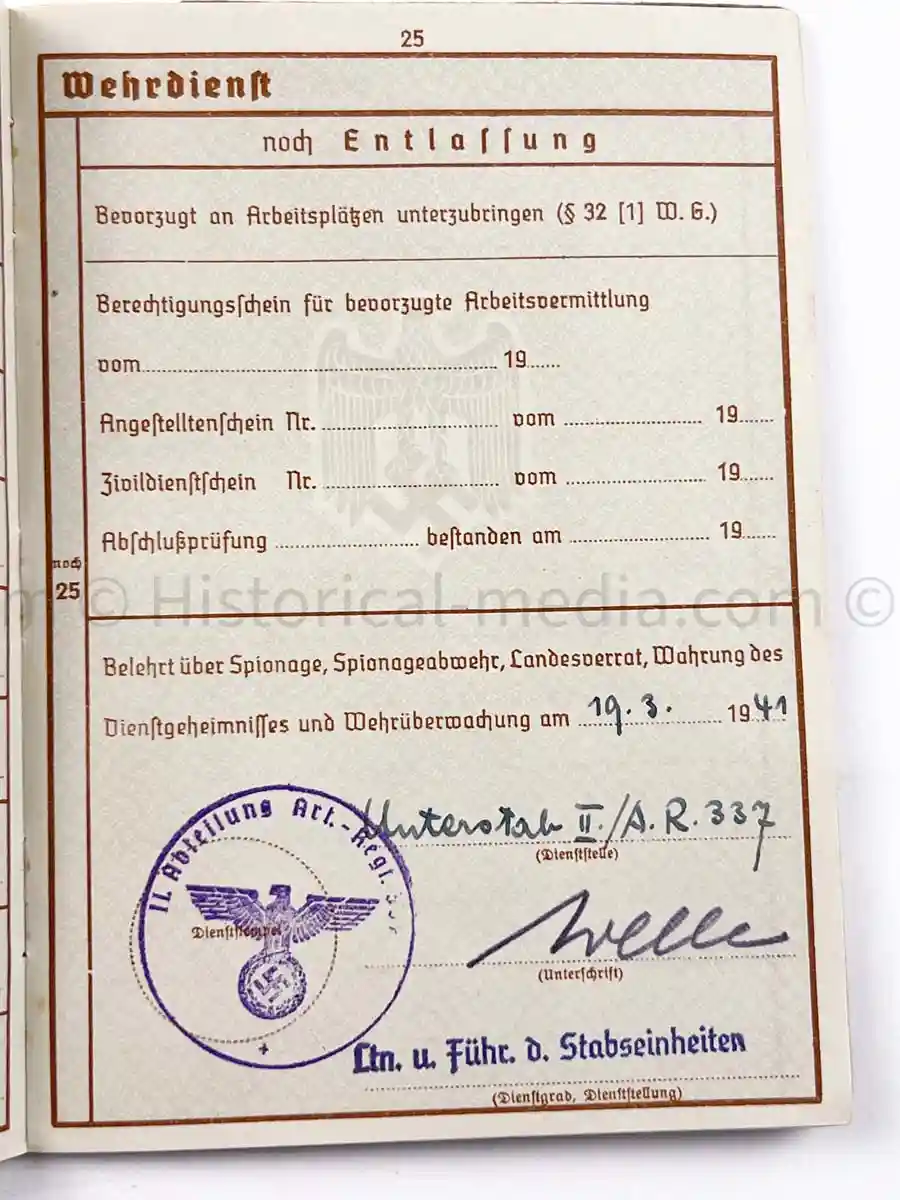 25
Wehrdienst
noch Entlassung
Bevorzugt an Arbeitsplätzen unterzubringen (§ 32 [1] W. G.)
Berechtigungsschein für bevorzugte Arbeitsvermittlung
vom 19
Angestelltenschein Nr. vom 19
Zivildienstschein Nr. vom 19
Abschlußprüfung bestanden am 19
noch
25
© Historical-media.com ©
Belehrt über Spionage, Spionageabwehr, Landesverrat, Wahrung des
Dienstgeheimnisses und Wehrüberwachung am 19.3. 1941
II. Abteilung Art.-Regt.
Unterstab II./A.R.337
(Dienststelle)
Dienststempel
Welle
(Unterschrift)
Ltn. u. Führ. d. Stabseinheiten
(Dienstgrad, Dienststellung)